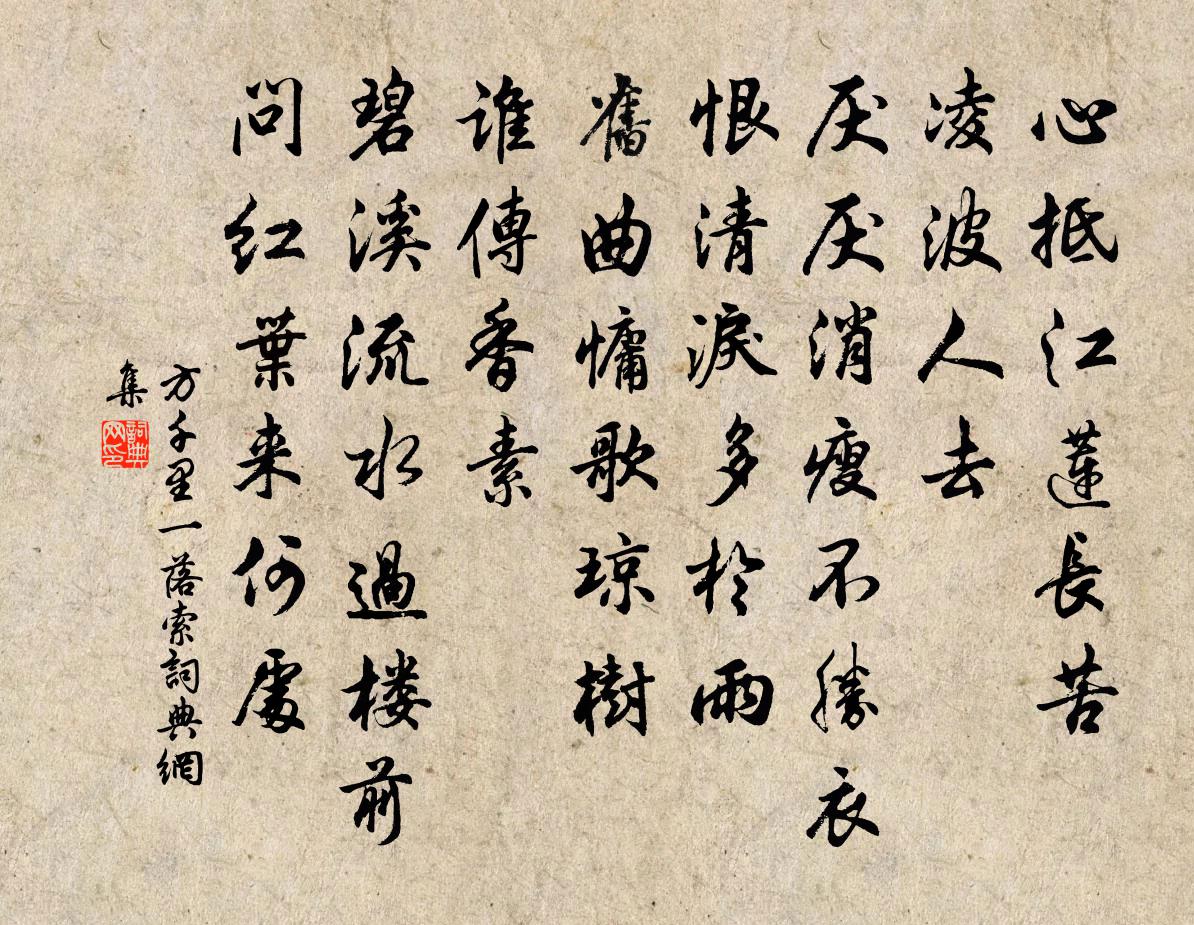 心抵江蓮長苦
凌波人去
厌厌消瘦不勝衣
恨清淚多於雨
舊曲慵歌琼樹
誰傳香素
碧溪流水過楼前
問红葉来何處
方千里一落索詞典網
集
詞典网印